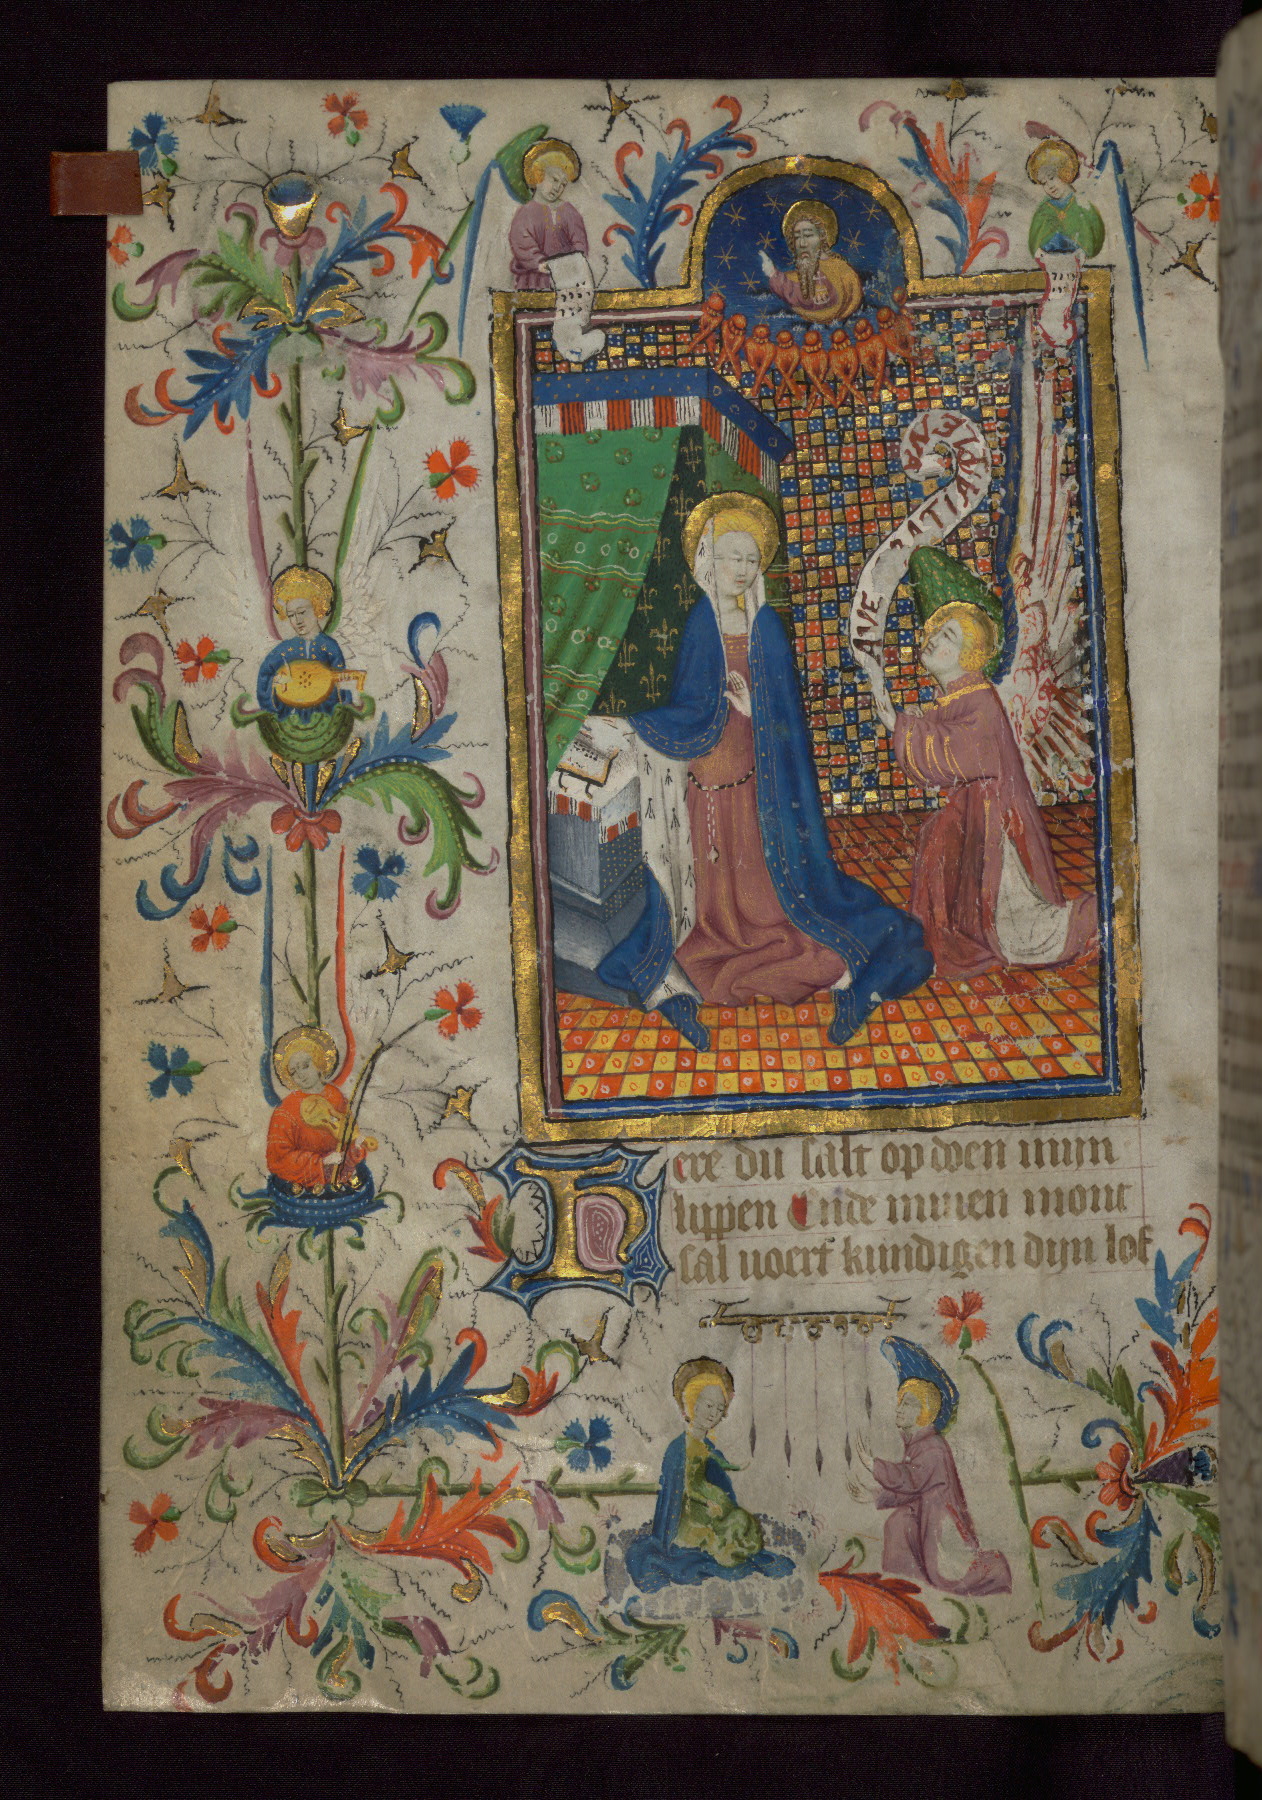 AVE GRATIA PLENA
Here du salt op doen mijn
lippen Ende minen mont
sal voert kundigen dijn lof